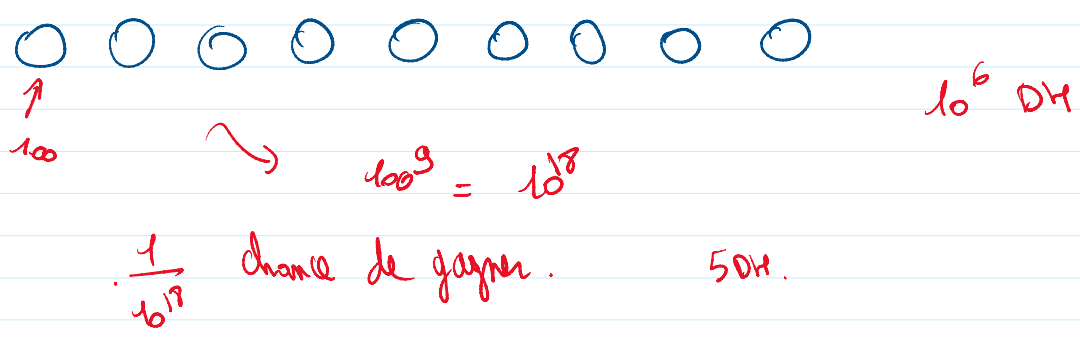 10⁶ DH
100
100⁹ = 10¹⁸
1/10¹⁸ chance de gagner. 5DH.